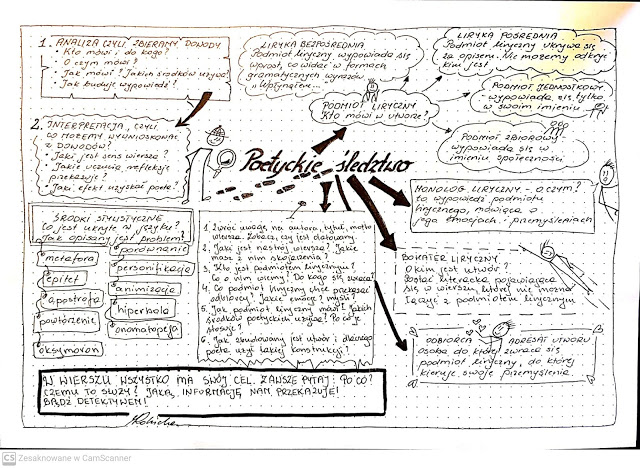 1. ANALIZA CZYLI, ZBIERAMY DOWODY
• Kto mówi i do kogo?
• O czym mówi?
• Jak mówi? Jakich środków używa?
• Jak buduje wypowiedź?
2. INTERPRETACJA, CZYLI
CO MOŻEMY WYWNIOSKOWAĆ
Z DOWODÓW?
• Jaki jest sens wiersza?
• Jakie uczucia, refleksje
przekazuje?
• Jaki efekt uzyskał poeta?
LIRYKA BEZPOŚREDNIA
Podmiot liryczny wypowiada się
wprost, co widać w formach
gramatycznych wyrazów
PODMIOT LIRYCZNY
Kto mówi w utworze?
LIRYKA POŚREDNIA
Podmiot liryczny ukrywa się
za opisem. Nie możemy odkryć
kim jest
PODMIOT JEDNOSTKOWY
- wypowiada się tylko
w swoim imieniu
PODMIOT ZBIOROWY -
wypowiada się w
imieniu społeczności
Poetyckie śledztwo
MONOLOG LIRYCZNY - O CZYM?
to wypowiedź podmiotu
lirycznego, mówiąca o
jego emocjach - przemyśleniach
BOHATER LIRYCZNY
O kim jest utwór?
Postać literacka pojawiająca
się w wierszu, której nie można
łączyć z podmiotem lirycznym
ODBIORCA ADRESAT UTWORU
osoba do której zwraca się
podmiot liryczny, do której
kieruje swoje przemyślenia
ŚRODKI STYLISTYCZNE
Co jest ukryte w języku?
Jak opisany jest problem?
porównanie
metafora
personifikacja
epitet
animizacja
apostrofa
hiperbola
powtórzenie
onomatopeja
oksymoron
1. Zwróć uwagę na autora, tytuł, motto
wiersza. Zobacz, czy jest datowany.
2. Jaki jest nastrój wiersza? Jakie
masz z nim skojarzenia?
3. Kto jest podmiotem lirycznym?
Co o nim wiemy? Do kogo się zwraca?
4. Co podmiot liryczny chce przekazać
odbiorcy? Jakie emocje? myśli?
5. Jak podmiot liryczny mówi? Jakich
środków poetyckich używa? Po co je
stosuje?
6. Jak zbudowany jest utwór i dlaczego
poeta użył takiej konstrukcji?
W WIERSZU WSZYSTKO MA SWÓJ CEL. ZAWSZE PYTAJ: PO CO?
CZEMU TO SŁUŻY? JAKĄ INFORMACJĘ NAM PRZEKAZUJE?
BĄDŹ DETEKTYWEM!
CS Zeskanowane w CamScanner